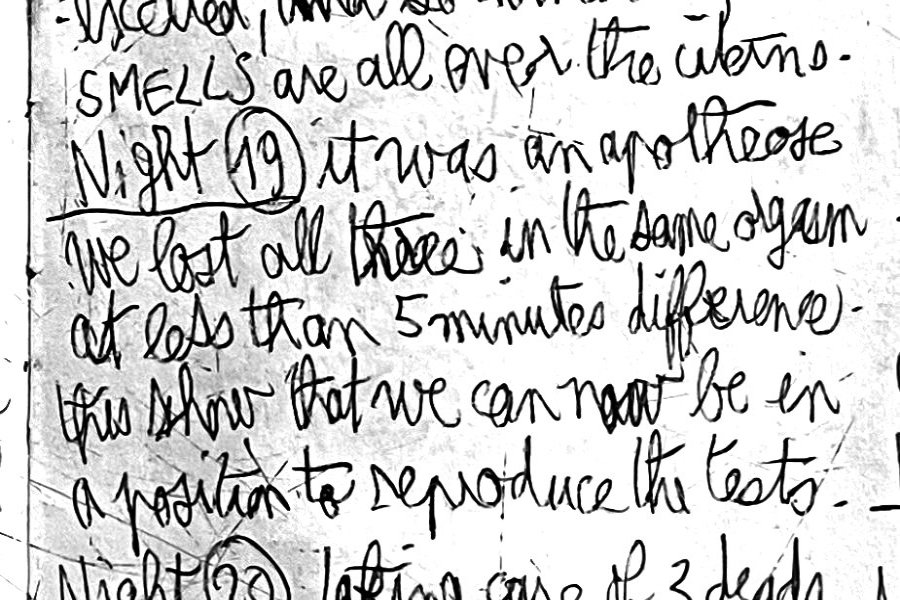 SMELLS are all over the uterus.
Night 19 it was an apotheose
we lost all three in the same orgasm
at less than 5 minutes difference.
this show that we can now be in
a position to reproduce the tests.
Night 20 taking care of 3 deads